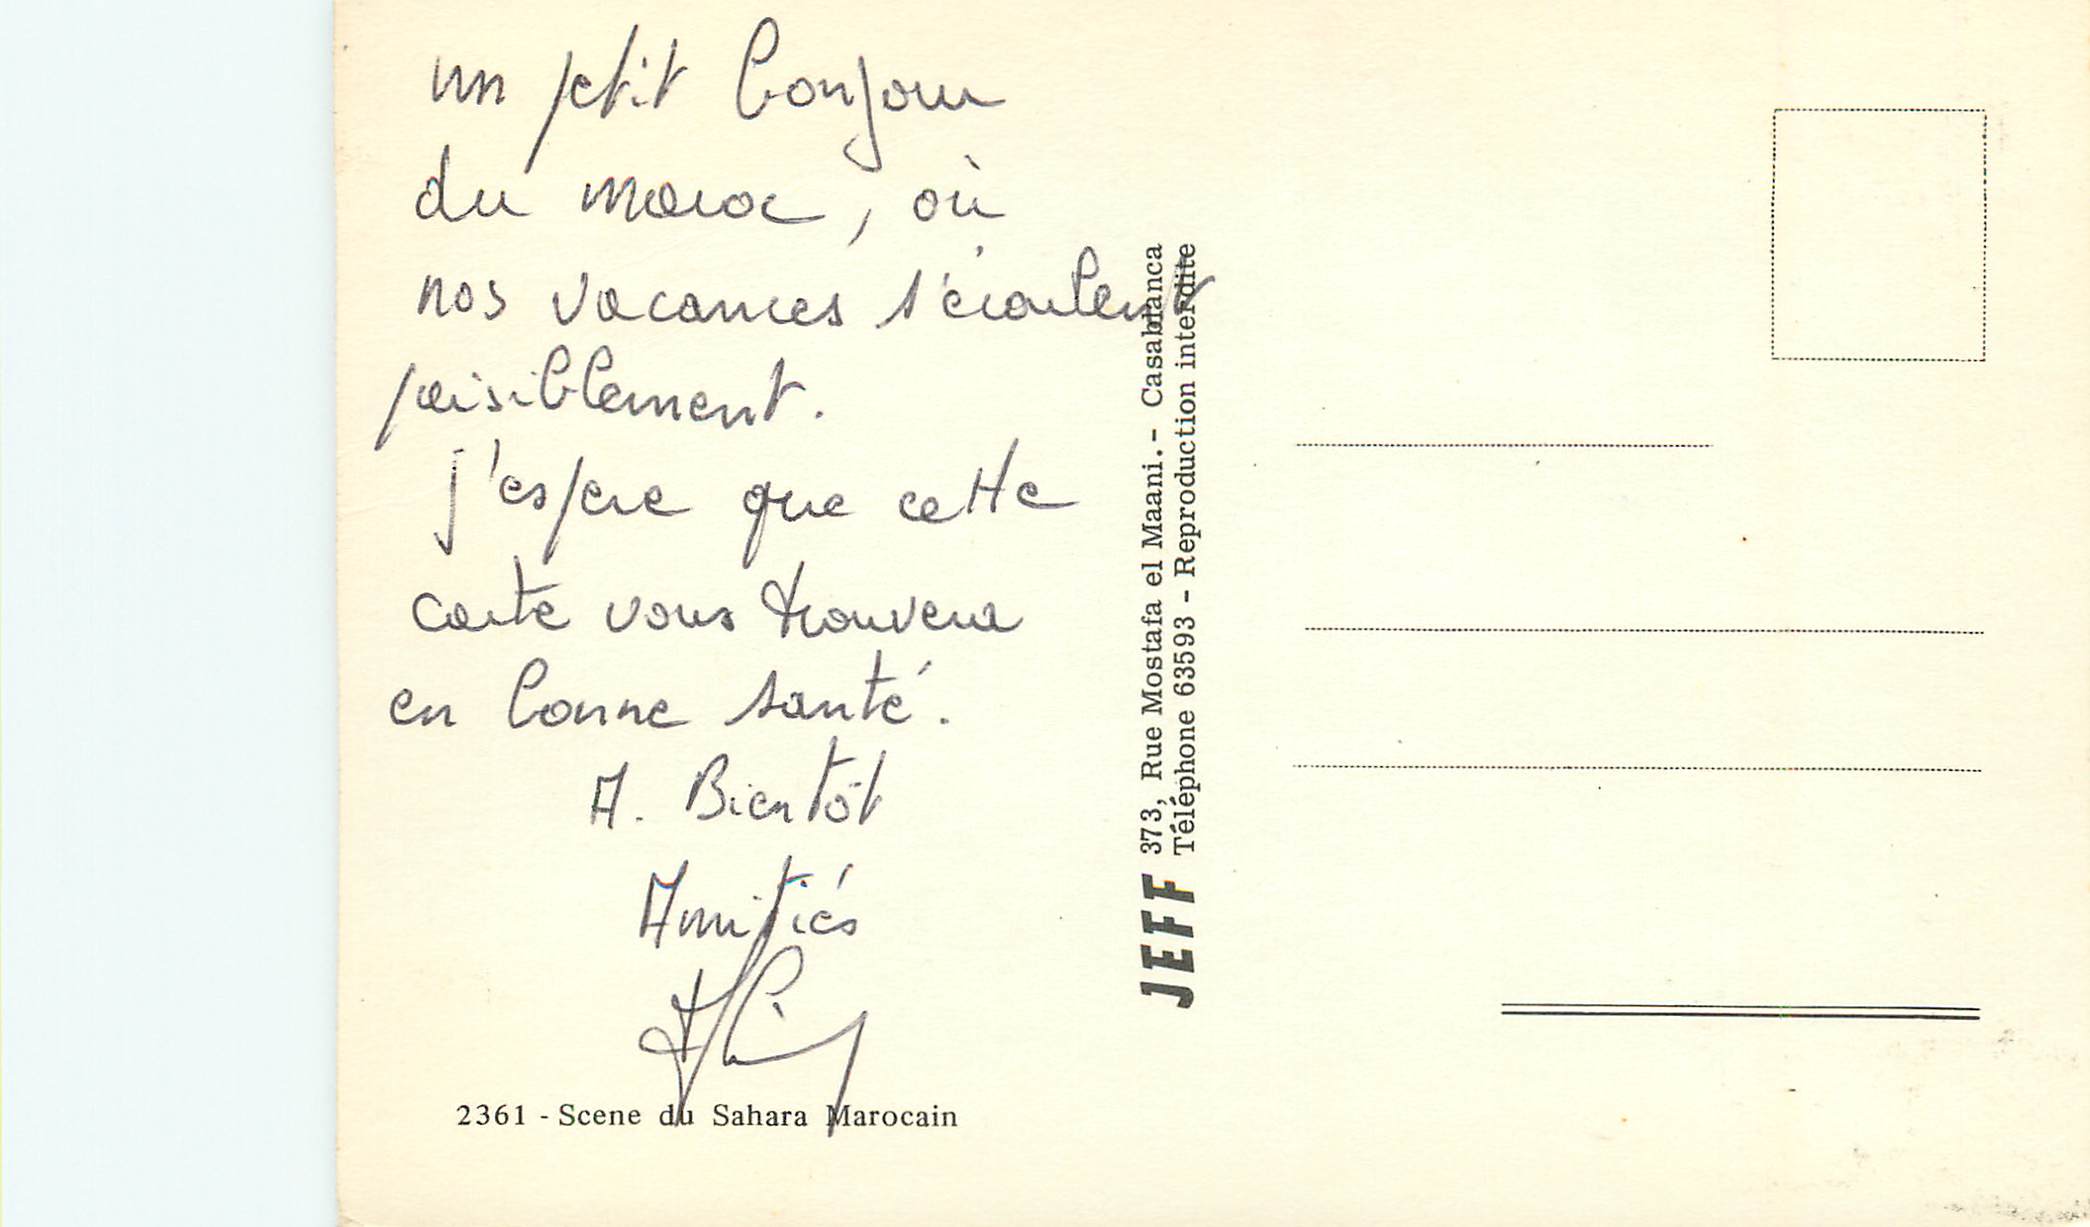 un petit bonjour
du maroc, où
nos vacances s'écoulent
paisiblement.
j'espere que cette
carte vous trouvera
en bonne santé.
A. Bientôt
Amitiés
2361 - Scene du Sahara Marocain
JEFF 373, Rue Mostafa el Maani. - Casablanca
Téléphone 63593 - Reproduction interdite